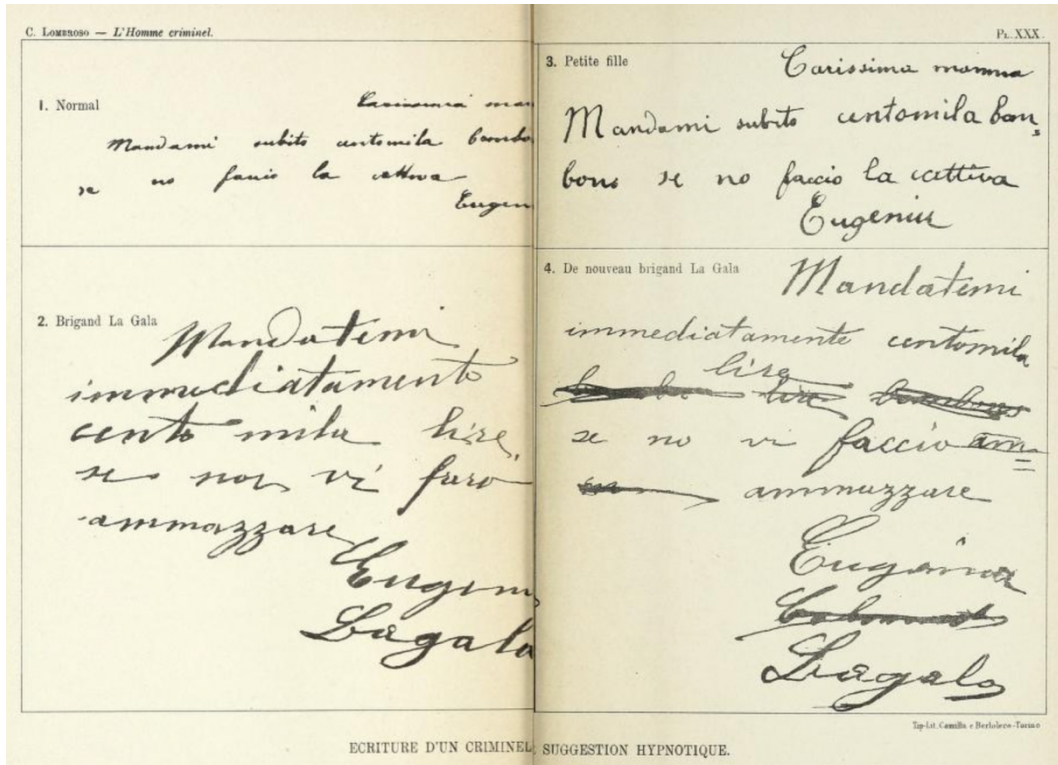 C. LOMBROSO — L'Homme criminel.
PL. XXX.
1. Normal
Carissima mam
Mandami subito centomila bombo
se no faccio la cattiva
Eugen
2. Brigand La Gala
Mandatemi
immediatamente
cento mila lire,
se non vi farò
ammazzare
Eugeni
Lagala
3. Petite fille
Carissima mamma
Mandami subito centomila bon-
bons se no faccio la cattiva
Eugenia
4. De nouveau brigand La Gala
Mandatemi
immediatamente centomila
lire
lire
se no vi faccio am=
ammazzare
Eugenia
Lagala
Tip-Lit. Camilla e Bertolero-Torino
ECRITURE D'UN CRIMINEL; SUGGESTION HYPNOTIQUE.